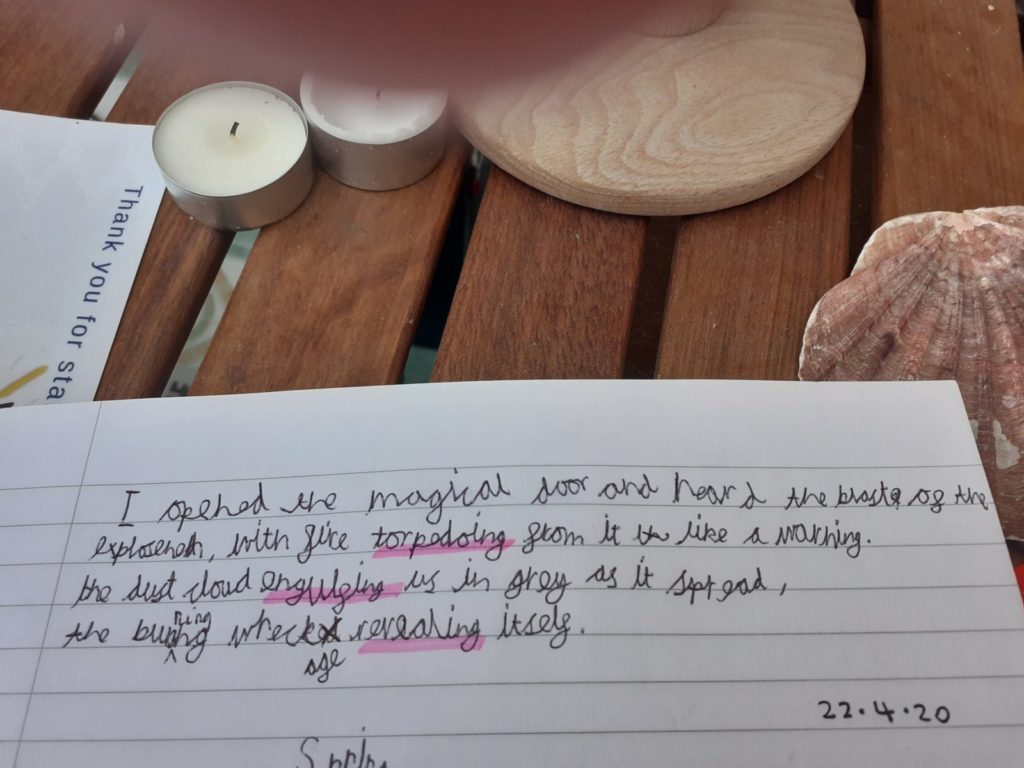 Thank you for sta
I opened the magical door and heard the blast of the
explosenen, with fire torpedoing from it like a warning.
the dust cloud engulging us in grey as it spread,
the burning wreckage revealing itself.
22.4.20